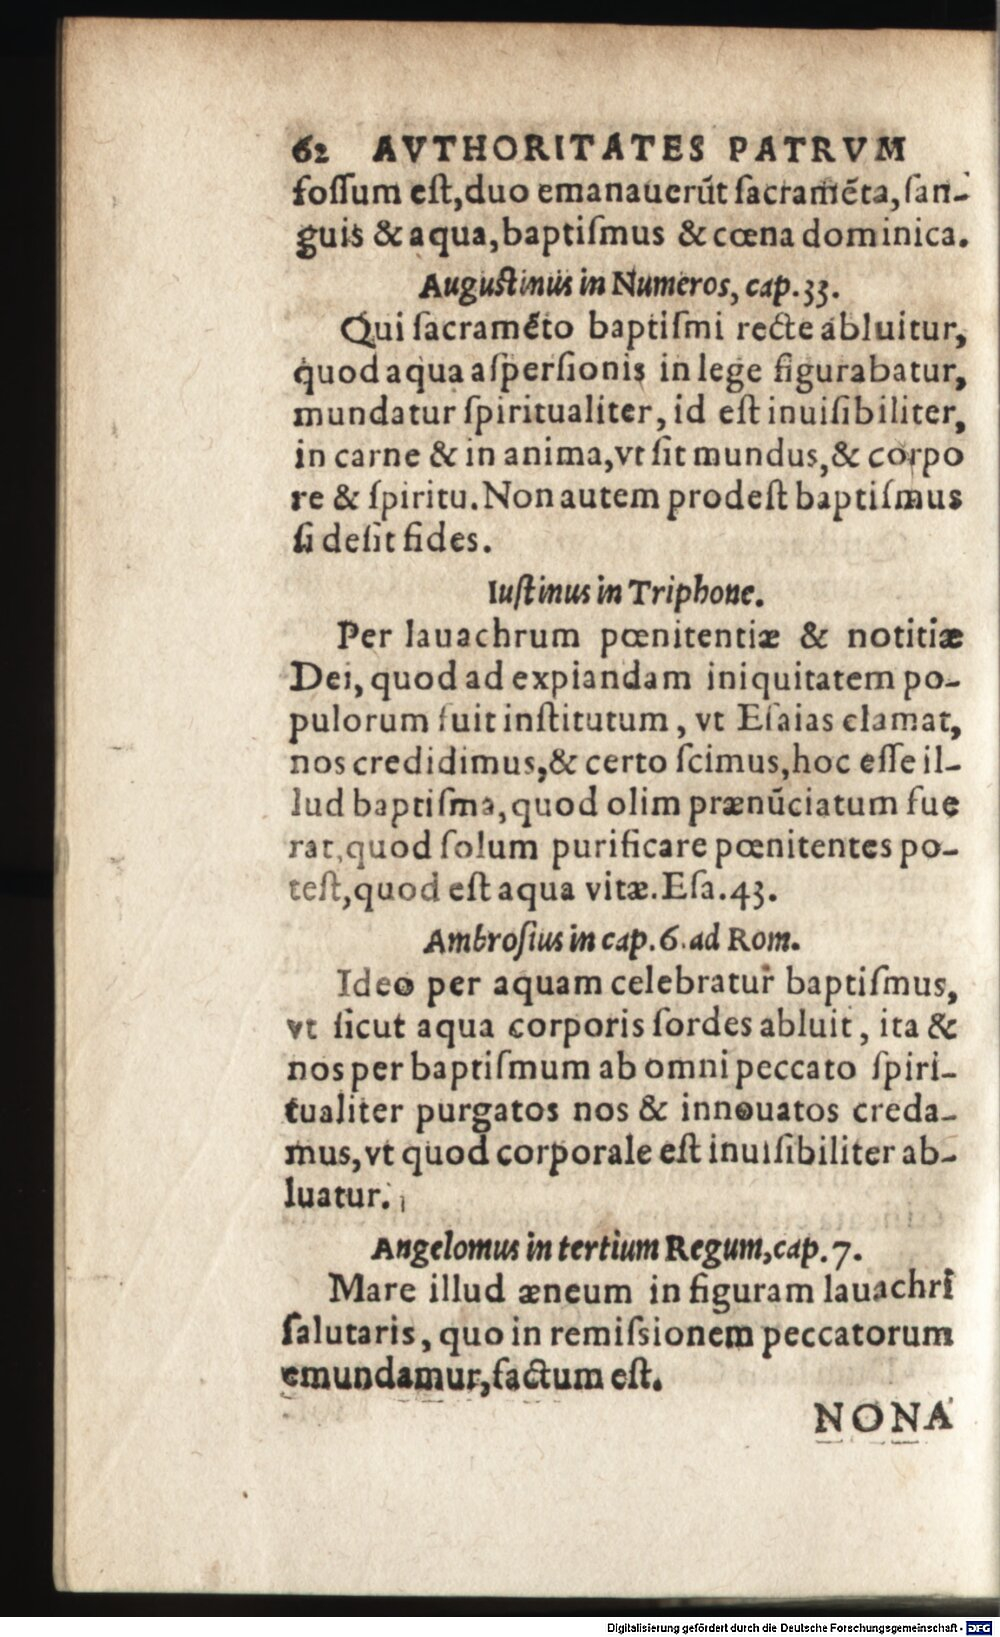 62 AVTHORITATES PATRVM
foſſum eſt,duo emanauerūt ſacramēta,ſan-
guis & aqua,baptiſmus & cœna dominica.
Auguſtinus in Numeros, cap.33.
Qui ſacramēto baptiſmi recte abluitur,
quod aqua aſperſionis in lege figurabatur,
mundatur ſpiritualiter, id eſt inuiſibiliter,
in carne & in anima,vt ſit mundus,& corpo
re & ſpiritu. Non autem prodeſt baptiſmus
ſi deſit fides.
Iuſtinus in Triphone.
Per lauachrum pœnitentiæ & notitiæ
Dei, quod ad expiandam iniquitatem po-
pulorum fuit inſtitutum, vt Eſaias clamat,
nos credidimus,& certo ſcimus,hoc eſſe il-
lud baptiſma,quod olim prænūciatum fue
rat,quod ſolum purificare pœnitentes po-
teſt,quod eſt aqua vitæ.Eſa.43.
Ambroſius in cap.6.ad Rom.
Ideo per aquam celebratur baptiſmus,
vt ſicut aqua corporis ſordes abluit, ita &
nos per baptiſmum ab omni peccato ſpiri-
tualiter purgatos nos & innouatos creda-
mus,vt quod corporale eſt inuiſibiliter ab-
luatur.
Angelomus in tertium Regum,cap.7.
Mare illud æneum in figuram lauachri
ſalutaris, quo in remiſsionem peccatorum
emundamur,factum eſt.
NONA
Digitalisierung gefördert durch die Deutsche Forschungsgemeinschaft - DFG